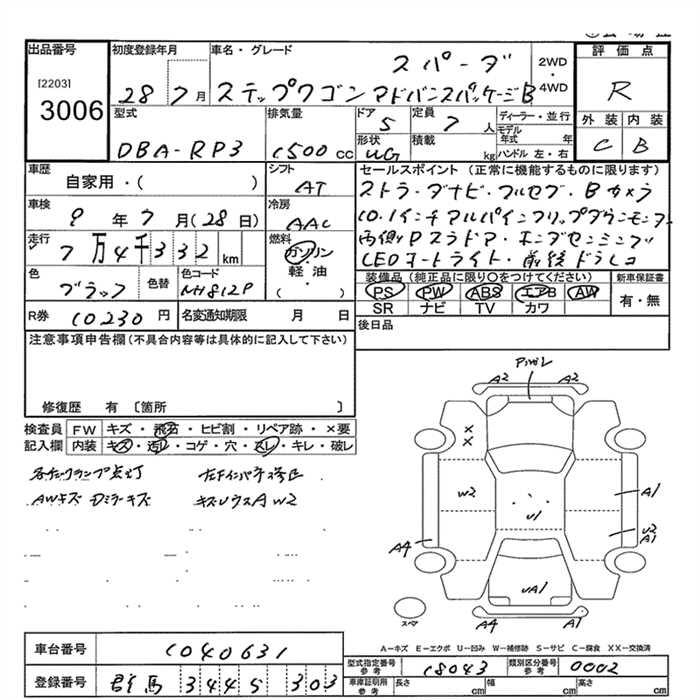 出品番号
[2203]
3006
初度登録年月
28 7月
車名・グレード
スパーダ
ステップワゴン アドバンスパッケージB
2WD
・
4WD
評 価 点
R
外 装 内 装
C B
型式
DBA-RP3
排気量
1500 cc
ドア
5
定員
7 人
形状
UG
積載
kg
ディーラー・並行
モデル年式 年
ハンドル 左・右
車歴
自家用・( )
シフト
AT
車検
9 年 7 月(28 日)
冷房
AAC
走行
7 万 4 千 332 km
燃料
ガソリン
・
軽・油
( )
色
ブラック
色替
色コード
NH812P
R券 10230 円
名変通知期限 月 日
セールスポイント (正常に機能するものに限ります)
ストラーダナビ・フルセブ・Bカメラ
10.1インチアルパインフリップダウンモニター
両側Pスラドア・ホンダセンシング
LEDオートライト・前後ドラレコ
装備品 (純正品に限り○をつけてください)
新車保証書
PS PW ABS エアB AW
SR ナビ TV カワ
有・無
後日品
注意事項申告欄 (不具合内容等は具体的に記入して下さい)
修復歴 有 〔箇所 〕
検査員記入欄
FW キズ・飛石・ヒビ割・リペア跡・×要
内装 キズ・汚レ・コゲ・穴・スレ・キレ・破レ
AWキズ Dミラーキズ
A2 A2
×
×
W2
U1
A1
U2
A1
A4
UA1
スペア
A4 A1
A-キズ E-エクボ U-凹み W-補修跡 S-サビ C-腐食 XX-交換済
車台番号 1040631
登録番号 群馬 344 5 303
型式指定番号 参考 18043
類別区分番号 参考 0002
車庫証明用 参考 長さ cm 幅 cm 高さ cm